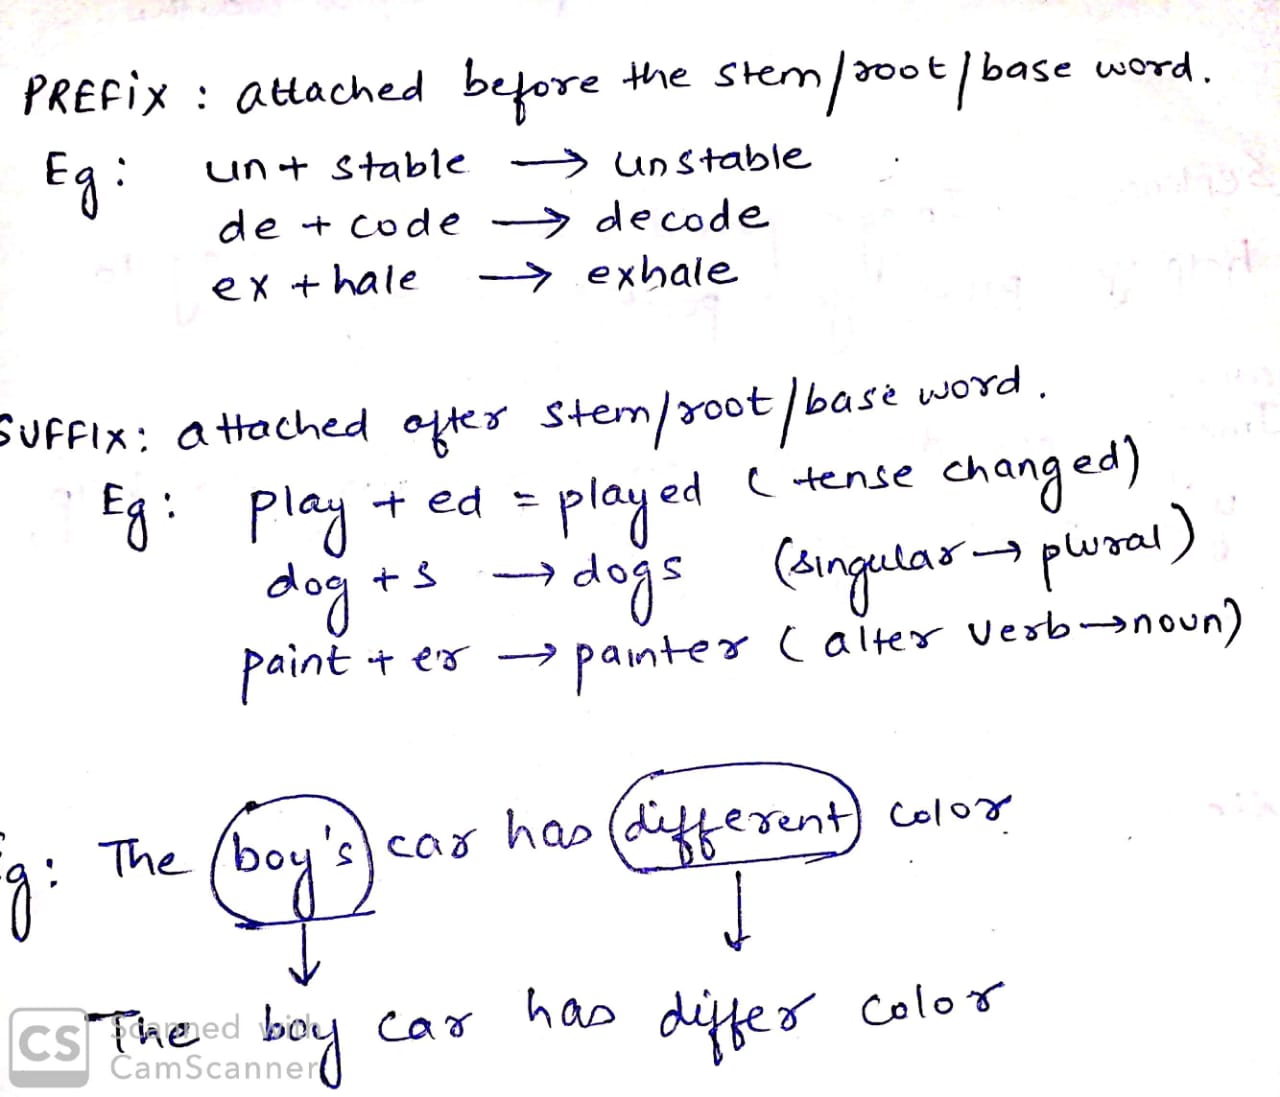 PREFiX : attached before the stem/root/base word.
Eg: un + stable → unstable
de + code → decode
ex + hale → exhale
SUFFIX: attached after stem/root/base word.
Eg: play + ed = played (tense changed)
dog + s → dogs (singular → plural)
paint + er → painter (alter verb → noun)
Eg: The boy's car has different color
↓ ↓
The boy car has differ color
CS Scanned with
CamScanner